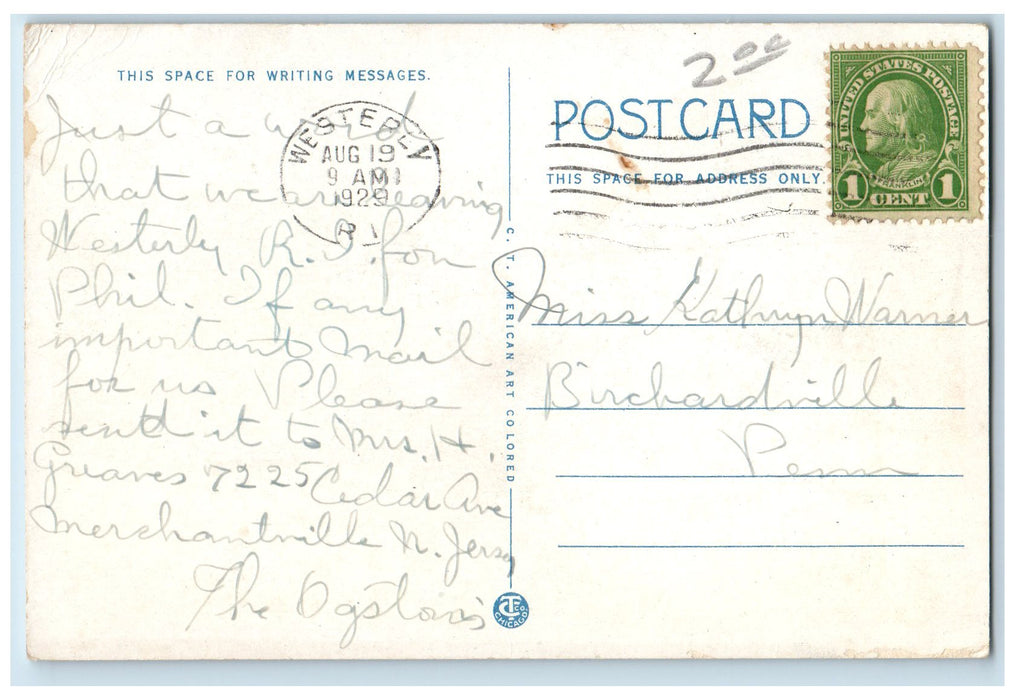 THIS SPACE FOR WRITING MESSAGES.
Just a word
that we are leaving
Westerly R. I. for
Phil. If any
important Mail
for us Please
send it to Mrs. H.
Greaves 7225 Cedar Ave
Merchantville N. Jersy
The Ogston's
WESTERLY
AUG 19
9 AM
1929
R.I.
C. T. AMERICAN ART COLORED
CT CO
CHICAGO
2.00
POST CARD
THIS SPACE FOR ADDRESS ONLY.
UNITED STATES POSTAGE
FRANKLIN
1 CENT 1
Miss Kathryn Warner
Birchardville
Penn